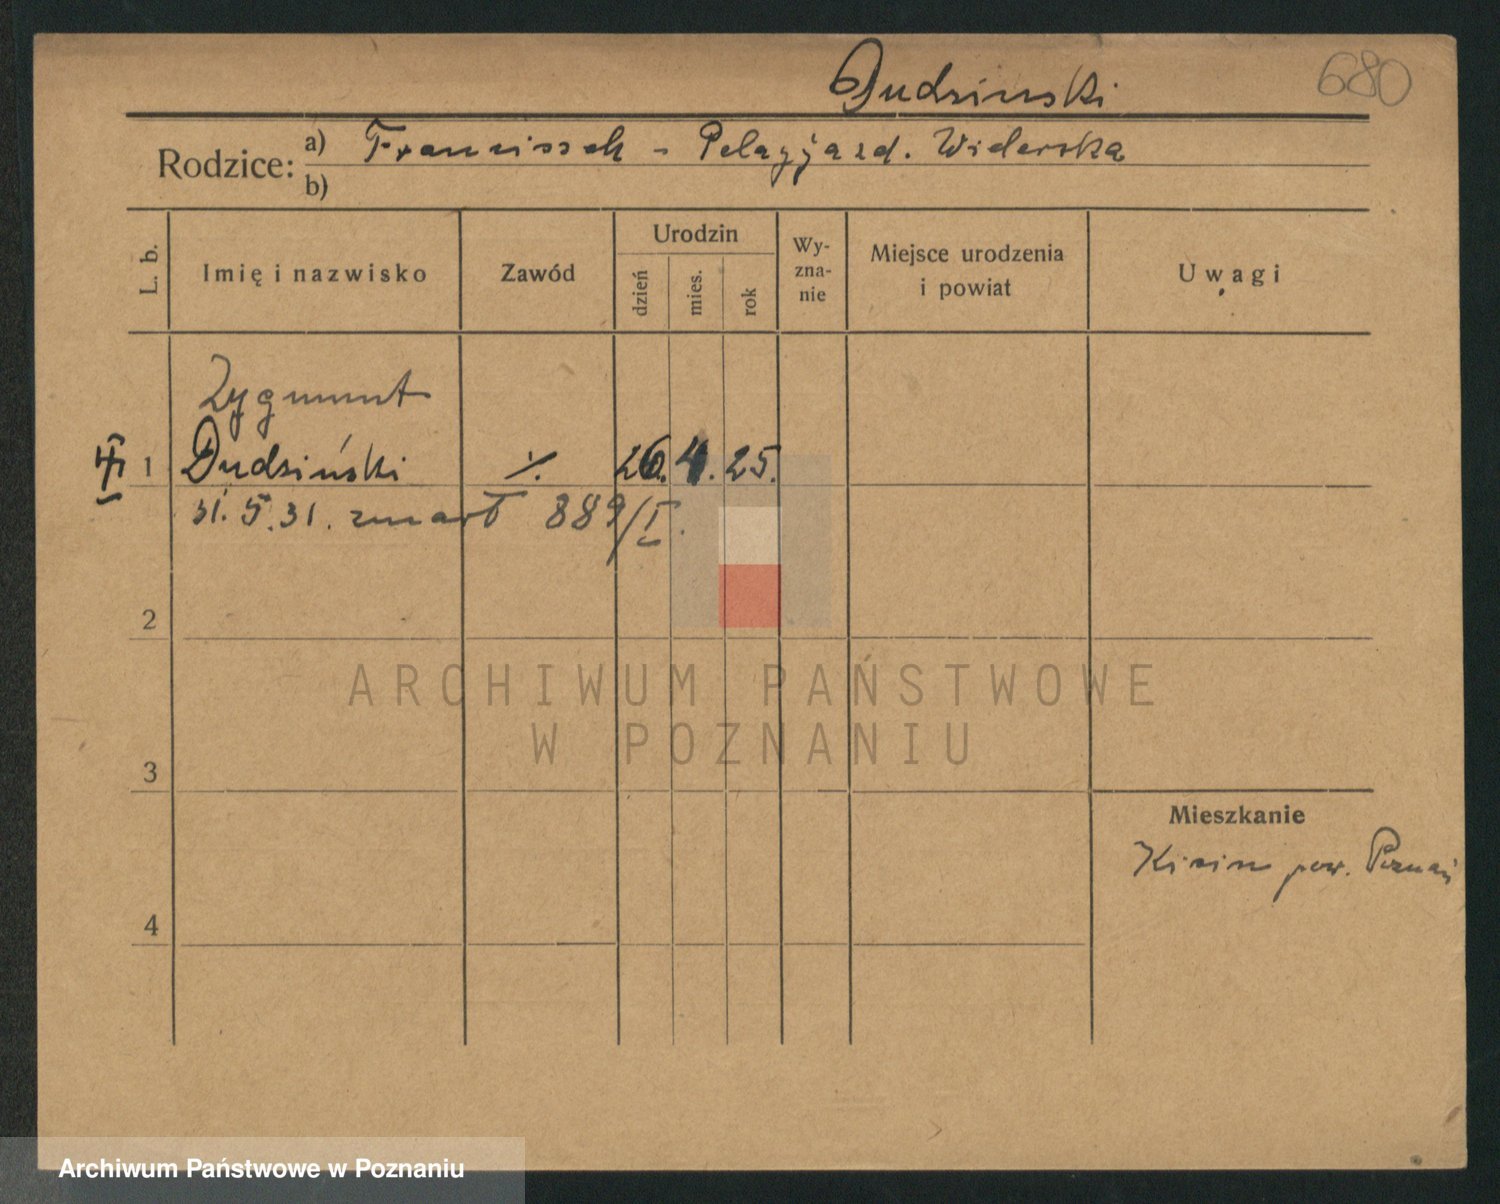 Dudzinski
680
Rodzice: a) Franciszek - Pelagja zd. Widerska
b)
L. b.
Imię i nazwisko
Zawód
Urodzin
dzień
mies.
rok
Wy-
zna-
nie
Miejsce urodzenia
i powiat
Uwagi
Zygmunt
1 Dudziński ./. 26. 4. 25.
31. 5. 31. zmarł 889/I.
2
3
4
Mieszkanie
pow. Poznań
ARCHIWUM PAŃSTWOWE
W POZNANIU
Archiwum Państwowe w Poznaniu